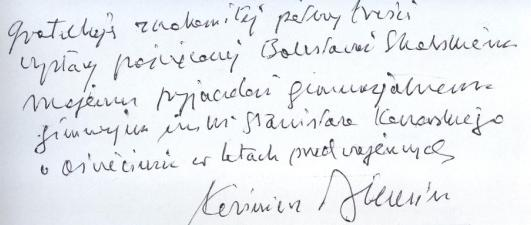 Gratuluję znakomitej pełnej treści
wystawy poświęconej Bolesławowi
mojemu przyjacielowi gimnazjalnemu
gimnazjum im. Stanisława Konarskiego
w Oświęcimiu w latach przedwojennych
Kazimierz